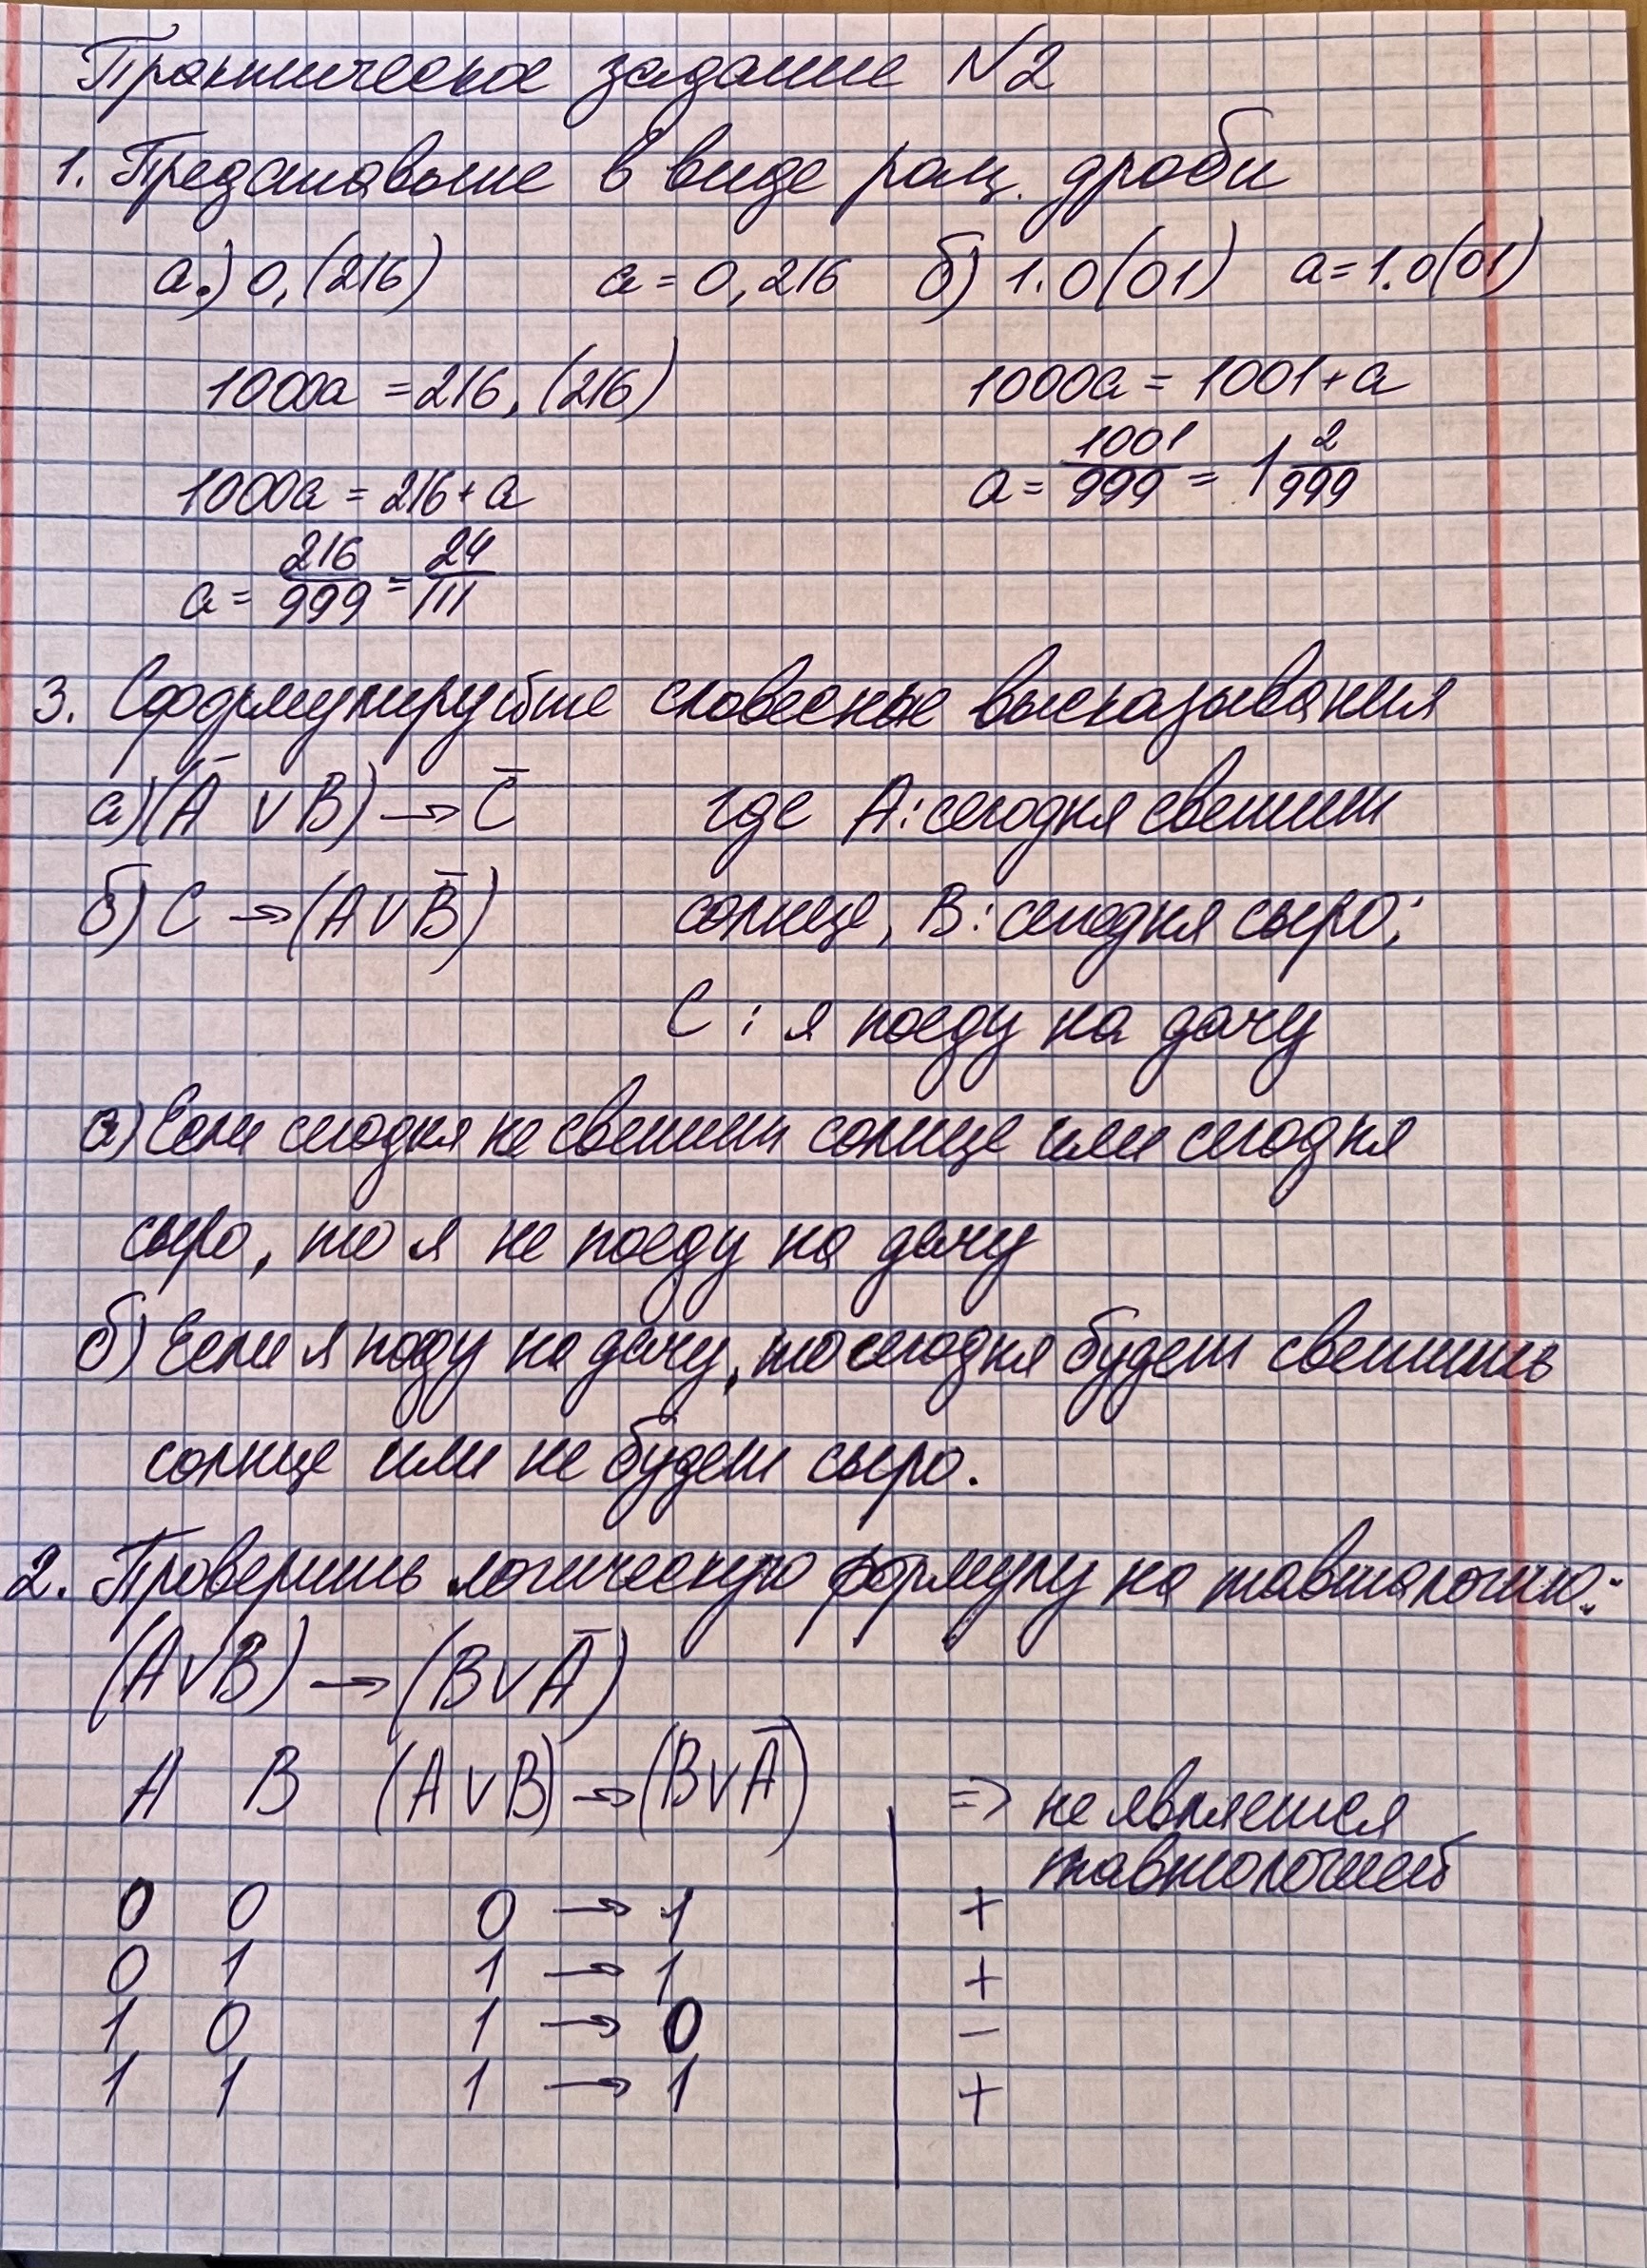 Практическое задание N2
1. Представьте в виде рац. дроби
а.) 0,(216) a = 0,216 б) 1.0(01) a = 1.0(01)
1000a = 216,(216) 1000a = 1001 + a
1000a = 216 + a a = 1001/999 = 1 2/999
a = 216/999 = 24/111
3. Сформулируйте словесные высказывания
а) (A̅ ∨ B) → C̅ где A: сегодня светит
б) C → (A ∨ B̅) солнце, B: сегодня сыро;
C: я поеду на дачу
а) Если сегодня не светит солнце или сегодня
сыро, то я не поеду на дачу
б) Если я поеду на дачу, то сегодня будет светить
солнце или не будет сыро.
2. Проверить логическую формулу на тавталогию:
(A∨B) → (B∨A̅)
A B (A∨B) → (B∨A̅) => не является
тавтологией
0 0 0 → 1 +
0 1 1 → 1 +
1 0 1 → 0 −
1 1 1 → 1 +